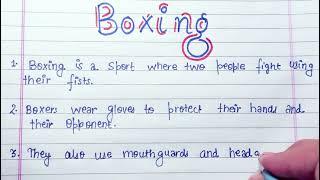 Boxing
1. Boxing is a sport where two people fight using
their fists.
2. Boxers wear gloves to protect their hands and
their opponent.
3. They also use mouthguards and